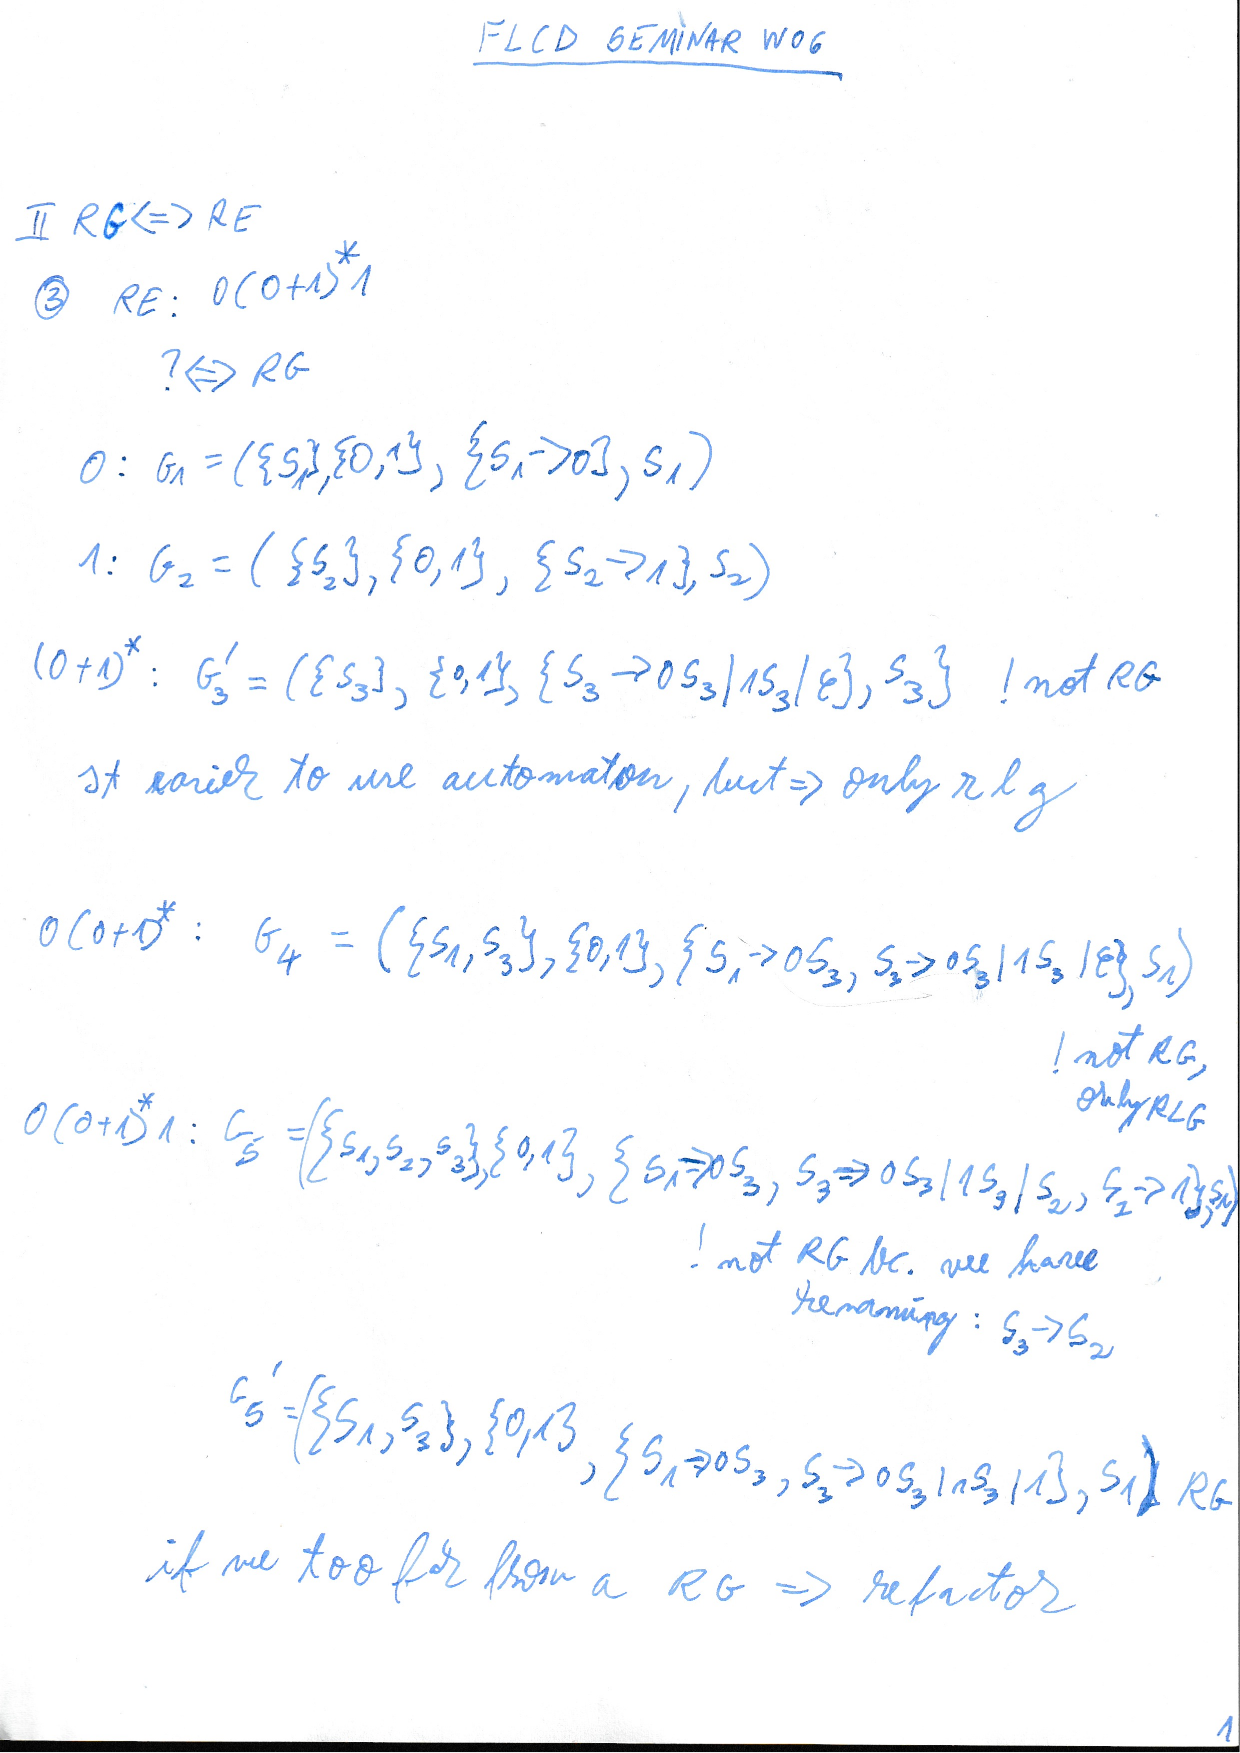 FLCD SEMINAR W06
II RG<=> RE
③ RE: 0(0+1)*1
?<=> RG
0: G₁ = ({S₁},{0,1}, {S₁->0}, S₁)
1: G₂ = ({S₂}, {0,1}, {S₂->1}, S₂)
(0+1)*: G₃' = ({S₃}, {0,1}, {S₃ ->0S₃|1S₃|ε}, S₃} ! not RG
st easier to use automaton, but => only r l g
0(0+1)*: G₄ = ({S₁, S₃}, {0,1}, {S₁->0S₃, S₃->0S₃|1S₃|ε}, S₁)
! not RG,
only RLG
0(0+1)*1: G₅ = ({S₁,S₂,S₃},{0,1}, {S₁->0S₃, S₃->0S₃|1S₃|S₂, S₂->1},S₁)
! not RG bc. we have
renaming: S₃->S₂
G₅' = ({S₁,S₃}, {0,1}, {S₁->0S₃, S₃->0S₃|1S₃|1}, S₁) RG
if we too far from a RG => refactor
1